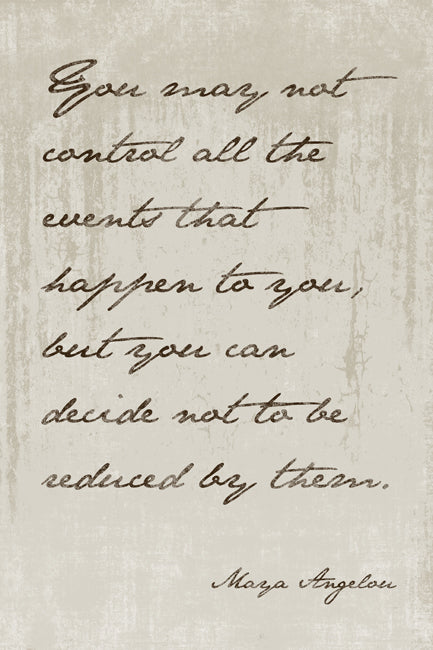 You may not
control all the
events that
happen to you,
but you can
decide not to be
reduced by them.
Maya Angelou